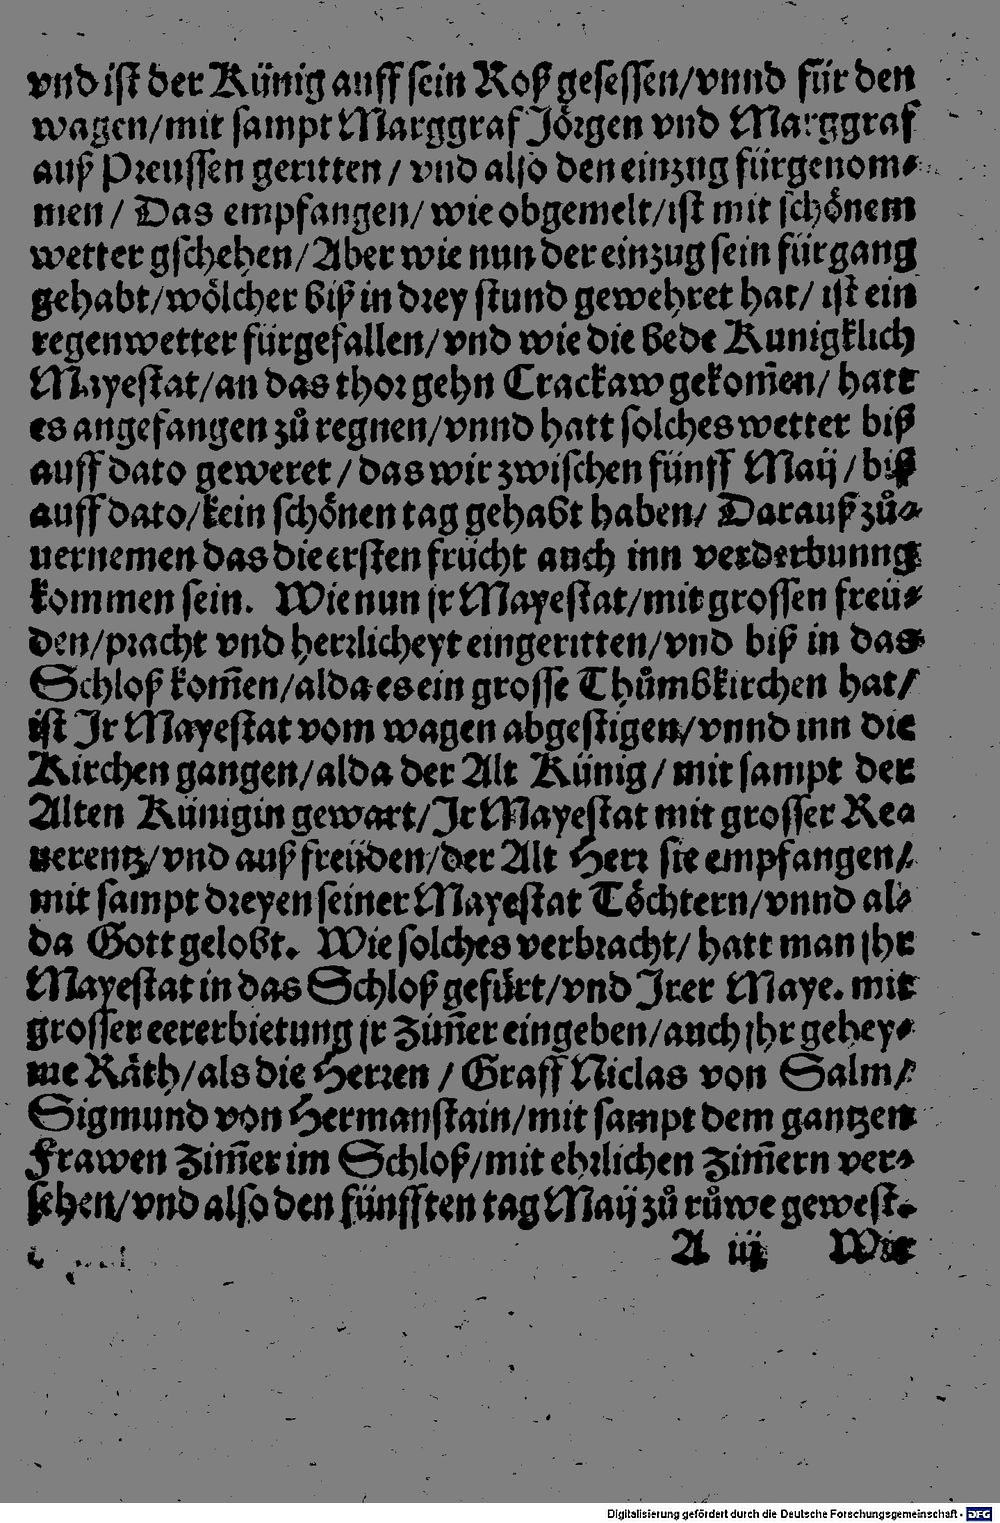 vnd ist der Künig auff sein Roß gesessen/vnnd für den
wagen/mit sampt Marggraf Jörgen vnd Marggraf
auß Preussen geritten/ vnd also den einzug fürgenom-
men/ Das empfangen/ wie obgemelt/ist mit schönem
wetter gschehen/Aber wie nun der einzug sein fürgang
gehabt/wölcher biß in drey stund gewehret hat/ ist ein
regenwetter fürgefallen/vnd wie die bede Kunigklich
Mayestat/an das thor gehn Crackaw gekom̃en/ hatt
es angefangen zů regnen/vnnd hatt solches wetter biß
auff dato geweret/das wir zwischen fünff Maij/biß
auff dato/kein schönen tag gehabt haben/ Darauß zů-
uernemen das die ersten frücht auch inn verderbunng
kommen sein. Wie nun jr Mayestat/mit grossen freü-
den/pracht vnd herrlicheyt eingeritten/vnd biß in das
Schloß kom̃en/alda es ein grosse Thůmbkirchen hat/
ist Jr Mayestat vom wagen abgestigen/vnnd inn die
Kirchen gangen/alda der Alt Künig/mit sampt der
Alten Künigin gewart/Jr Mayestat mit grosser Rea
uerentz/vnd auß freüden/der Alt Herr sie empfangen/
mit sampt dreyen seiner Mayestat Töchtern/vnnd al-
da Gott gelobt. Wie solches verbracht/ hatt man jhr
Mayestat in das Schloß gefürt/vnd Jrer Maye. mit
grosser eererbietung jr Zim̃er eingeben/auch jhr gehey-
me Räth/als die Herren/Graff Niclas von Salm/
Sigmund von Hermanstain/mit sampt dem gantzen
Frawen Zim̃er im Schloß/mit ehrlichen Zim̃ern ver-
sehen/vnd also den fünfften tag Maij zů růwe gewest.
A iij Wie
Digitalisierung gefördert durch die Deutsche Forschungsgemeinschaft - DFG